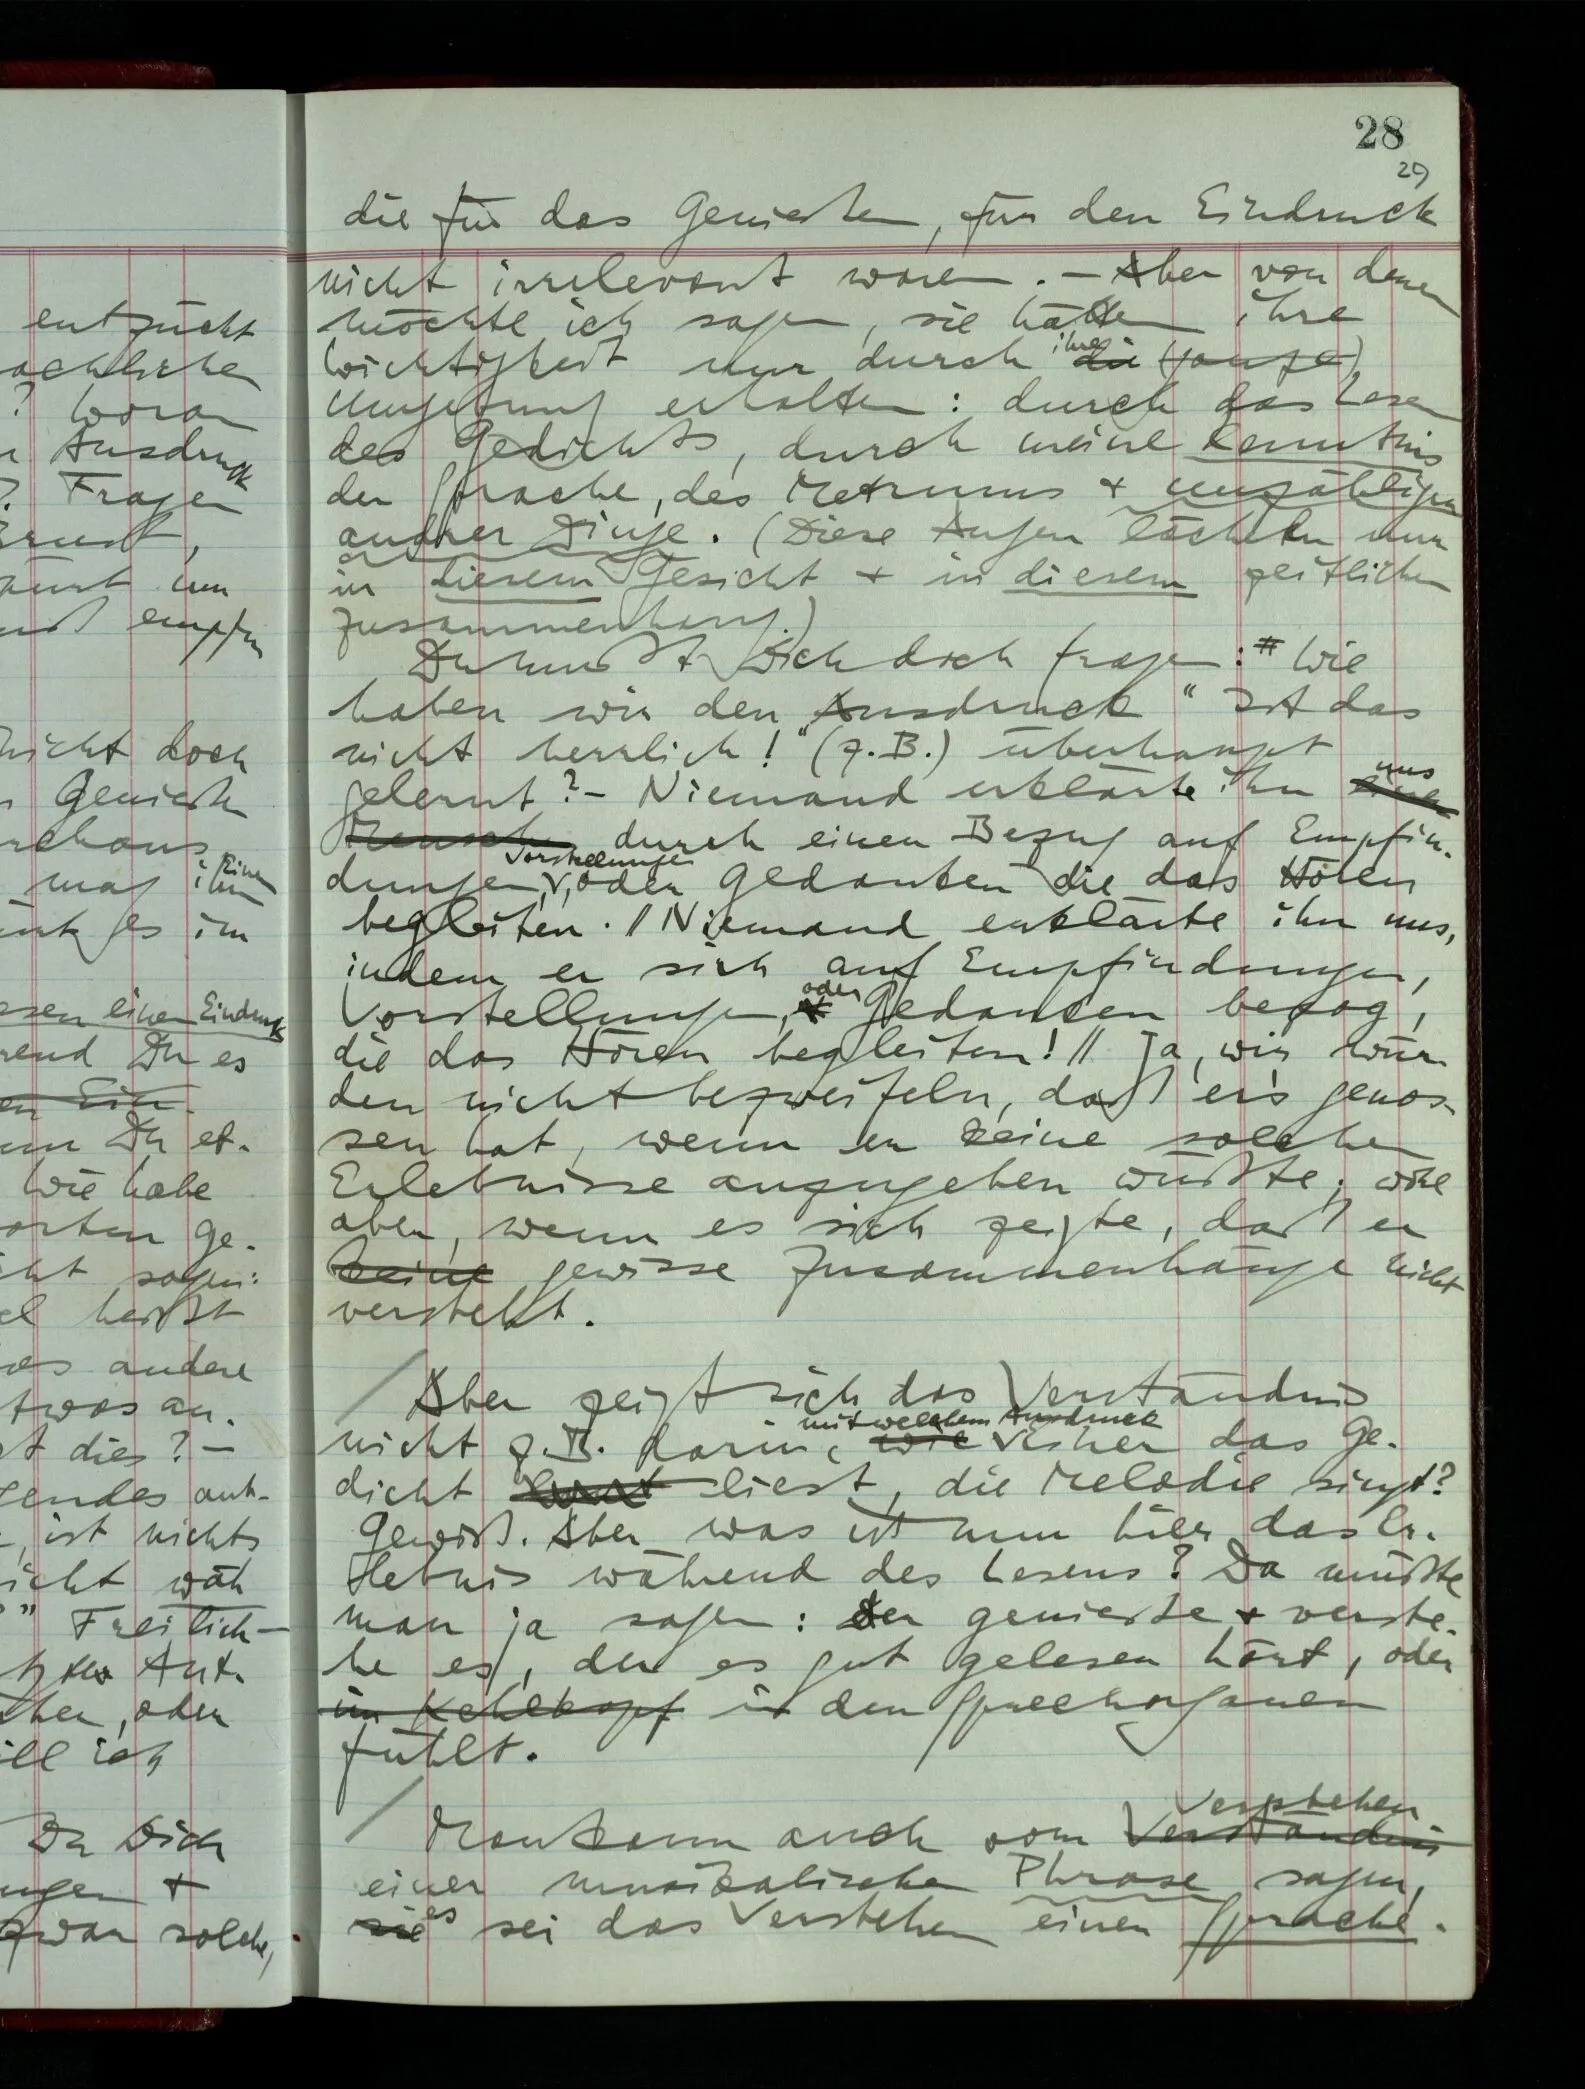 entzückt
? Woran
Ausdruck
? Fragen
Ernst,
nicht doch
Geniessen
mag ihm Einer
es im
einen Eindruck
Du es
en Ein-
Du et-
Wie habe
orten ge-
sagen:
heißt
andere
etwas an-
dies? –
ant-
, ist nichts
nicht wäh
" Freilich –
Ant-
, oder
will ich
Du Dich
+
zwar solche,
28
29
die für das Geniessen, für den Eindruck
nicht irrelevant waren. – Aber von denen
möchte ich sagen, sie hätten ihre
Wichtigkeit nur durch ihre die (ganze)
Umgebung erhalten: durch das Lesen
des Gedichts, durch meine Kenntnis
der Sprache, des Metrums + unzähligen
andrer Dinge. (Diese Augen lächeln nur
in diesem Gesicht + in diesem zeitlichen
Zusammenhang.)
Du mußt Dich doch fragen: Wie
haben wir den Ausdruck "Ist das
nicht herrlich!" (z.B.) überhaupt
gelernt? – Niemand erklärte ihn uns
Menschen durch einen Bezug auf Empfin-
dungen, Vorstellungen, oder Gedanken die das Hören
begleiten. // Niemand erklärte ihn uns,
indem er sich auf Empfindungen,
Vorstellungen, oder Gedanken bezog,
die das Hören begleiten! // Ja, wir wür-
den nicht bezweifeln, daß er's genos-
sen hat, wenn er keine solchen
Erlebnisse anzugeben wüßte; wohl
aber, wenn es sich zeigte, daß er
keine gewisse Zusammenhänge nicht
versteht.
/ Aber zeigt sich das Verständnis
nicht z.B. darin, wie mit welchem Ausdruck Einer das Ge-
dicht liest, die Melodie singt?
Gewiß. Aber was ist nun hier das Er-
lebnis während des Lesens? Da müßte
man ja sagen: der genieße + verste-
he es, der es gut gelesen hört, oder
im Kehlkopf in den Sprechorganen
fühlt.
/ Man kann auch vom Verständnis Verstehen
einer musikalischen Phrase sagen,
sie es sei das Verstehen einer Sprache.